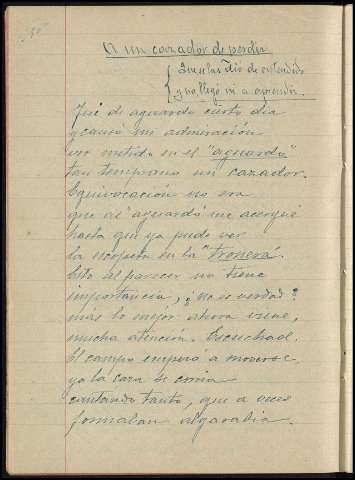 A un cazador de perdiz
Que se las dió de entendido
y no llegó ni a aprendiz.
Fuí de aguardo cierto dia
y causó mi admiración
ver metido en el "aguardo"
tan temprano un cazador.
Equivocación no era
que al "aguardo" me acerqué
hasta que ya pude ver
la escopeta en la "tronera".
Esto al parecer no tiene
importancia, ¿no es verdad?
más lo mejor ahora viene,
mucha atención. Escuchad.
El campo empezó a moverse
ya la caza se corria
cantando tanto, que a veces
formaban algarabia.